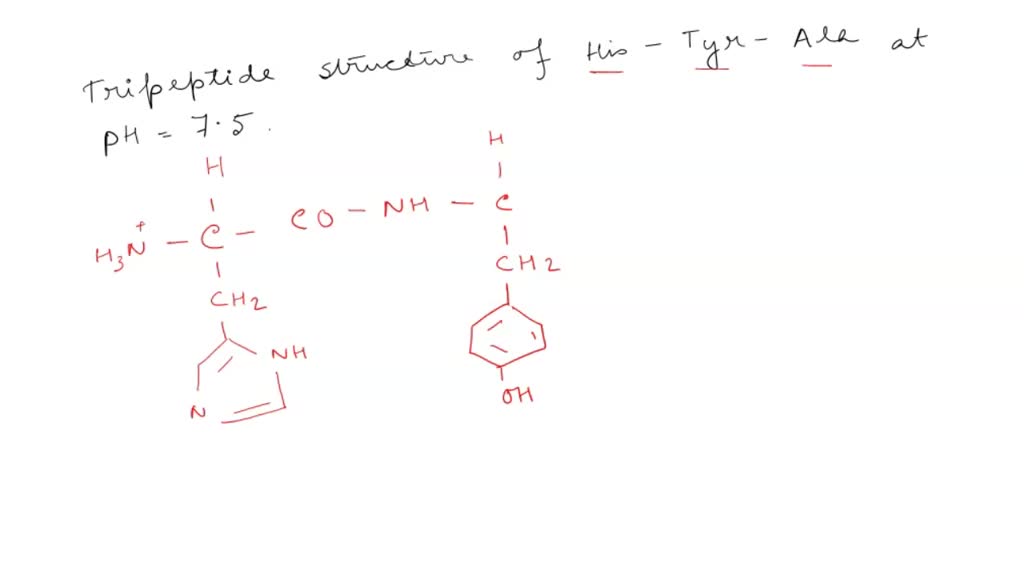 Tripeptide structure of His - Tyr - Ala at
pH = 7.5.
H H
H3N+ - C - CO - NH - C
CH2 CH2
NH
N OH